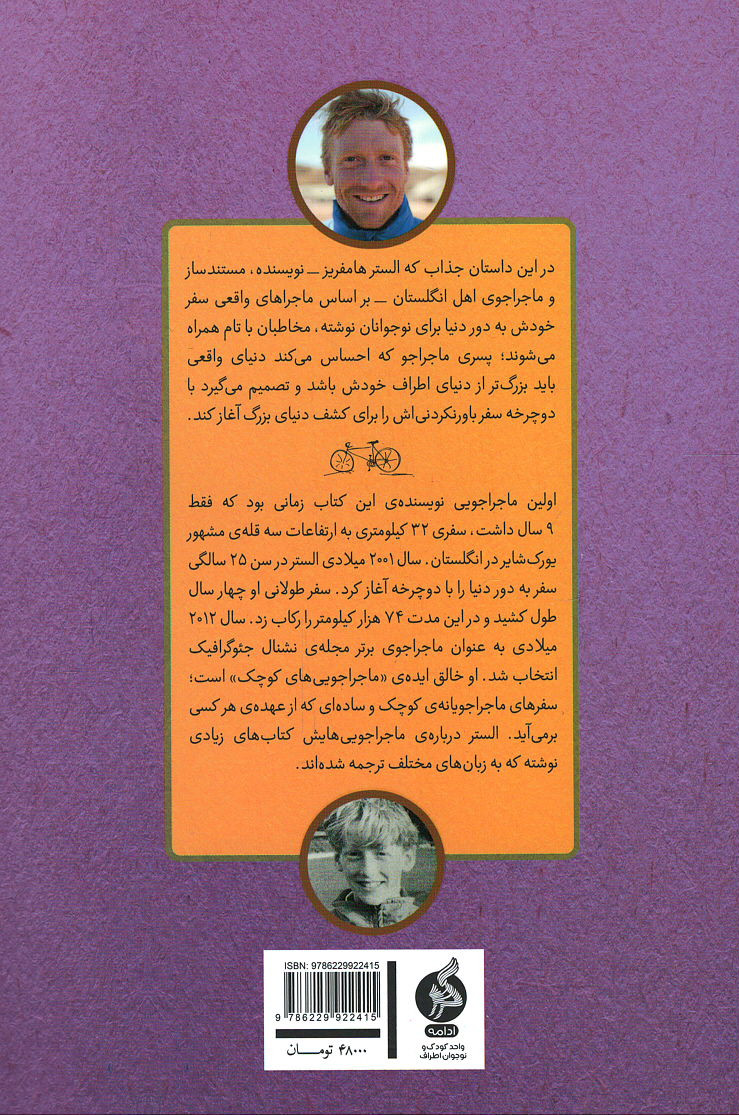 در این داستان جذاب که الستر هامفریز ــ نویسنده، مستندساز
و ماجراجوی اهل انگلستان ــ بر اساس ماجراهای واقعی سفر
خودش به دور دنیا برای نوجوانان نوشته، مخاطبان با تام همراه
می‌شوند؛ پسری ماجراجو که احساس می‌کند دنیای واقعی
باید بزرگ‌تر از دنیای اطراف خودش باشد و تصمیم می‌گیرد با
دوچرخه سفر باورنکردنی‌اش را برای کشف دنیای بزرگ آغاز کند.
اولین ماجراجویی نویسنده‌ی این کتاب زمانی بود که فقط
۹ سال داشت، سفری ۳۲ کیلومتری به ارتفاعات سه قله‌ی مشهور
یورک‌شایر در انگلستان. سال ۲۰۰۱ میلادی الستر در سن ۲۵ سالگی
سفر به دور دنیا را با دوچرخه آغاز کرد. سفر طولانی او چهار سال
طول کشید و در این مدت ۷۴ هزار کیلومتر را رکاب زد. سال ۲۰۱۲
میلادی به عنوان ماجراجوی برتر مجله‌ی نشنال جئوگرافیک
انتخاب شد. او خالق ایده‌ی «ماجراجویی‌های کوچک» است؛
سفرهای ماجراجویانه‌ی کوچک و ساده‌ای که از عهده‌ی هر کسی
برمی‌آید. الستر درباره‌ی ماجراجویی‌هایش کتاب‌های زیادی
نوشته که به زبان‌های مختلف ترجمه شده‌اند.
ISBN: 9786229922415
9 786229 922415
۴۸۰۰۰ تومــان
ادامه
واحد کودک و
نوجوان اطراف